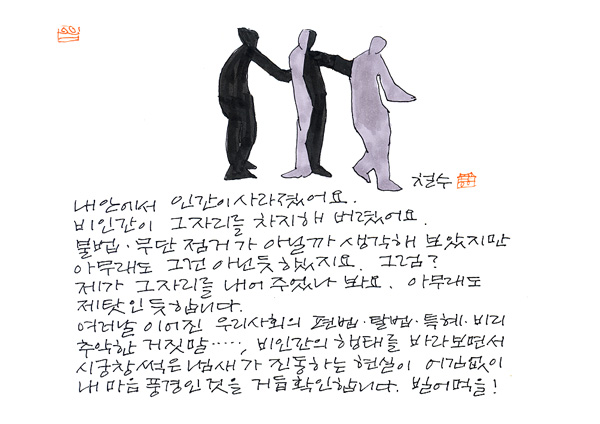 철수
내안에서 인간이 사라졌어요.
비인간이 그자리를 차지해 버렸어요.
불법·무단 점거가 아닐까 생각해 보았지만
아무래도 그건 아닌듯 했지요. 그럼?
제가 그자리를 내어 주었나 봐요. 아무래도
제탓인듯 합니다.
여러날 이어진 우리사회의 편법·탈법·특혜·비리
추악한 거짓말....., 비인간의 행태를 바라보면서
시궁창 썩은 냄새가 진동하는 현실이 어김없이
내 마음 풍경인것을 거듭 확인합니다. 빌어먹을!